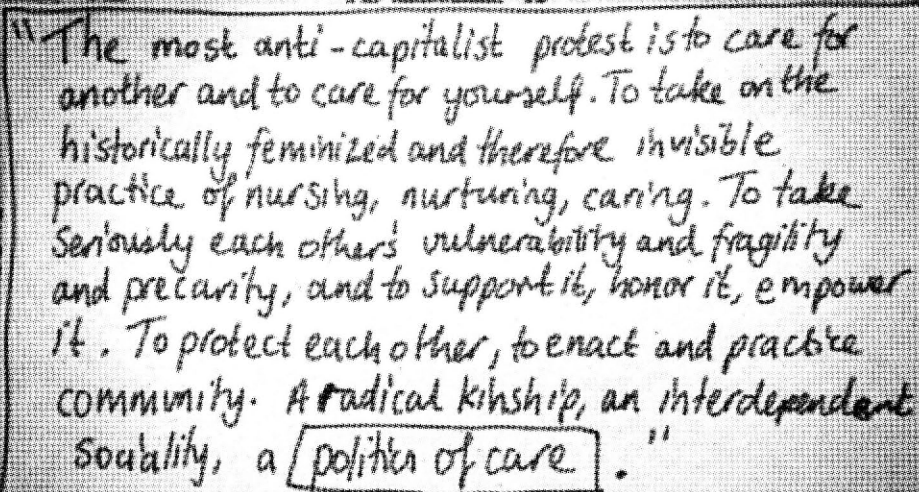 "The most anti-capitalist protest is to care for
another and to care for yourself. To take on the
historically feminized and therefore invisible
practice of nursing, nurturing, caring. To take
seriously each other's vulnerability and fragility
and precarity, and to support it, honor it, empower
it. To protect each other, to enact and practice
community. A radical kinship, an interdependent
sociality, a politics of care."